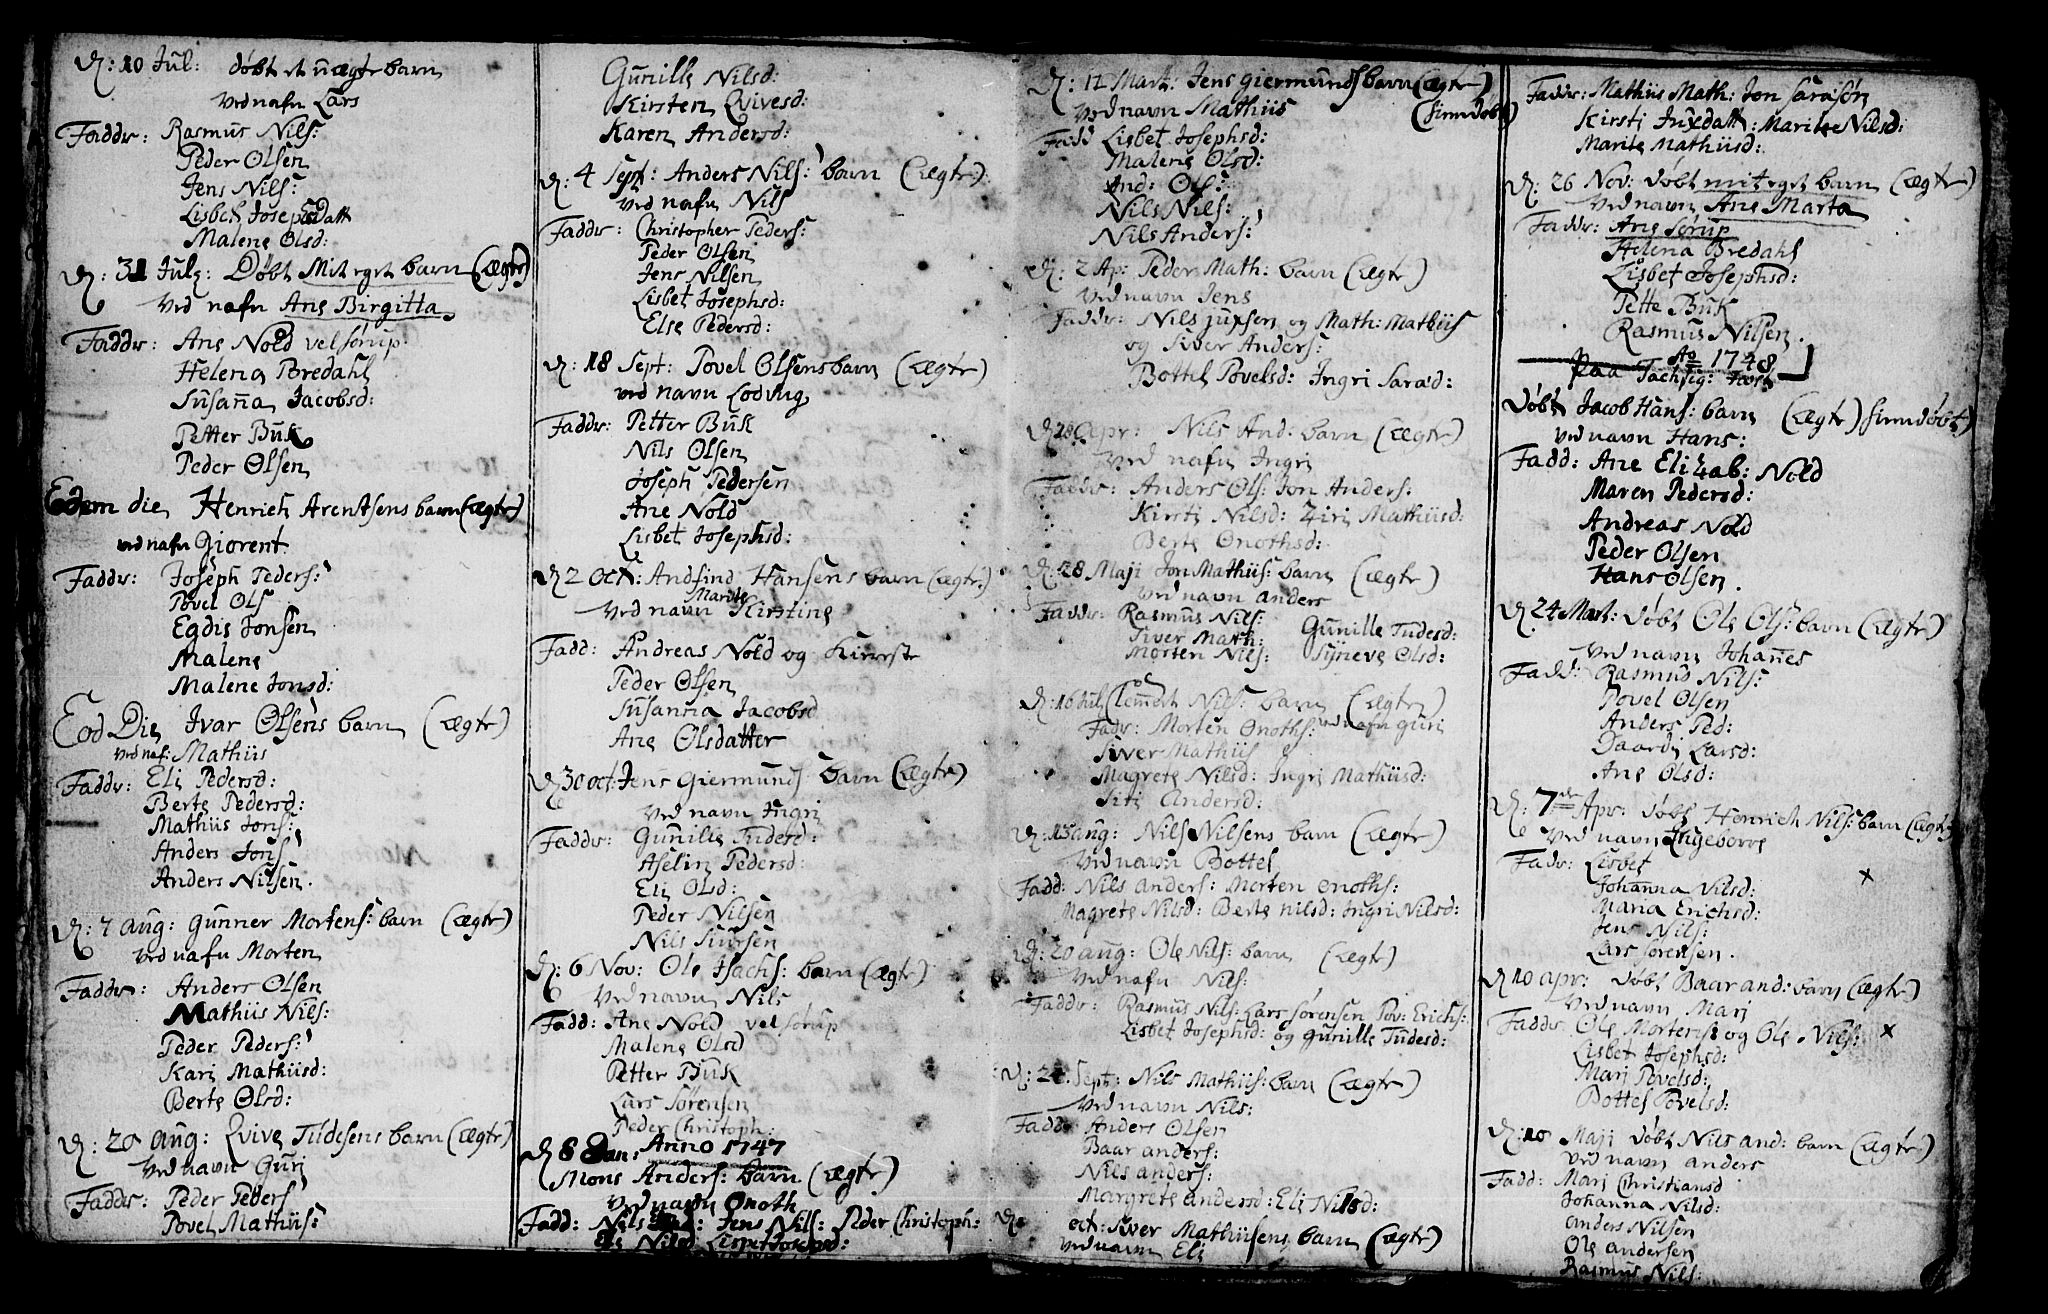 D: 10 Jul: døbt et uægte barn
Ved nafn Lars
Fadder: Rasmus Nils:
Peder Olsen
Jens Nils:
Lisbet Josephsdatt
Malene Olsd:
D: 31 July: Døbt Mit eget barn (ægte)
Ved nafn Ane Birgitta
Fadder: Ane Nold vel sørup
Helena Bredahl
Susanna Jacobsd:
Petter Buk
Peder Olsen
Edem die Henrich Arentsens barn (ægte)
ved nafn Giorent
Fadder: Joseph Peders:
Povel Ols
Egdis Jonsen
Malene
Malene Jonsd:
Eod Die Ivar Olsens barn (ægte)
Ved naf: Mathiis
Faddr: Eli Pedersd:
Berte Pedersd:
Mathiis Jons:
Anders Jons
Anders Nilsen.
D: 7 aug: Gunner Mortens: barn (ægte)
Ved nafn Morten
Fadder: Anders Olsen
Mathiis Niels:
Peder Peders:
Kari Mathiisd:
Berte Olsd:
D: 20 aug: Qvive Tudesens barn (ægte)
Ved navn Guri
Fadder: Peder Peders
Povel Mathiis:
Gunille Nilsd:
Kirsten Qvivesd:
Karen Andersd:
D: 4 sept: Anders Nils: barn (ægte)
Ved nafn Nils
Fadder: Christopher Peders:
Peder Olsen
Jens Nilsen
Lisbet Josephsd:
Else Pedersd:
D: 18 Sept: Povel Olsens barn (ægte)
ved navn Lodvig
Fadder: Petter Buk
Nils Olsen
Joseph Pedersen
Ane Nold
Lisbet Josephsd:
D 2 Oct: Andfind Hansens barn (ægte)
Marite
Ved navn Kirstine
Fadd: Andreas Nold og
Peder Olsen
Susanna Jacobsd
Ane Olsdatter
D 30 oct: Jens Giermunds barn (ægte)
Ved navn Ingri
Fadder: Gunille Tudesd:
Aselin Pedersd:
Eli Olsd:
Peder Nilsen
Nils Siursen
D: 6 Nov: Ole Isachs: barn (ægte)
Ved navn Nils
Fadd: Ane Nold vel sørup
Malene Olsd
Petter Buk
Lars Sørensen
Peder Christoph:
Anno 1747
D 6 Jan: Mons Anders: barn (ægte)
Ved navn Onoth
Fadd: Nils And: Jens Nills: Peder Christoph:
Els Nilsd Lisbet Josephsd:
D: 12 Mart: Jens giermunds barn (ægte)
Ved navn Mathiis (hiemdøbt)
Fadd Lisbet Josephsd:
Malene Olsd:
And: Ols:
Nils Nils:
Nils Anders:
D: 2 Ap: Peder Math: barn (ægte)
Ved navn Jens
Fadder: Nils juxsen og Math: Mathiis
og Siver Anders:
Bottel Povelsd: Ingri Sarad:
D: 28 Apr: Nils And: barn (ægte)
Ved nafn Ingri
Fadder: Anders Ols: Jon Anders:
Kirsti Nilsd: Ziri Mathiisd:
Berte Onothsd:
D: 28 Maji Jon Mathiis: barn (ægte)
Ved navn anders
Fadder: Rasmus Nils:
Gunille Tudesd:
Siver Math:
Morten Nils: Syneve Olsd:
D: 16 Jul Clemmet Nils: barn (ægte)
ved nafn guri
Fadr: Morten Onoths:
Siver Mathiis
Magrete Nilsd: Ingri Mathiisd:
Siti Andersd:
D: 13 aug: Nils Nilsens barn (ægte)
Ved navn Bottel
Fadd: Nils anders: Morten onoths:
Magrete Nilsd: Berte nilsd: Ingri Nilsd:
D: 20 aug: Ole Nils: barn (ægte)
Ved nafn Nils:
Fadder: Rasmus Nils: Lars sørensen Pov: Erichs:
Lisbet Josephsd: og gunille Tudesd:
D: 24 Sept: Nils Mathiis: barn (ægte)
Ved navn Nils:
Fadder Anders Olsen
Baar anders:
Nils anders:
Margrete andersd: Eli Nilsd:
D: oct: siver Mathiisens barn (ægte)
Ved navn Eli
Fadder: Mathiis Math: Jon Sarasøn
Kirsti Juxdatt: Marite Nilsd:
Marite Mathiisd:
D: 26 Nov: døbt mit eget barn (ægte)
Ved navn Ane Marta
Fadder: Ane Sørup
Helena Bredahl
Lisbet Josephsd:
Pette Buk
Rasmus Nilsen.
Ao 1748
Paa
Døbt Jacob Hans: barn (ægte) hiemdøbt
Ved navn Hans:
Fadd: Ane Elizab: Nold
Maren Pedersd:
Andreas Nold
Peder Olsen
Hans Olsen.
D 24 Mart: døbt Ole Ols: barn (ægte)
Ved navn Johannes
Fadd: Rasmus Nils:
Povel Olsen
Anders Ped:
Daardi Larsd:
Ane Olsd:
D: 7de Apr: døbt Henrich Nils: barn (ægte)
Ved navn Ingeborre
Fadr: Lisbet
Johanna Nilsd:
Maria Erichsd:
Jens Nils:
Lars sørensen.
D 10 apr: døbt Baar and: barn (ægte)
Ved navn Mari
Fadder Ole Mortens: og Ole Nils:
Lisbet Josephsd:
Mari Povelsd:
Bottel Povelsd:
D: 10 Maji døbt Nils and: barn (ægte)
Ved navn anders
Fadd: Mari Christiansd
Johanna Nilsd:
anders Nilsen
Ole andersen
Rasmus Nils: